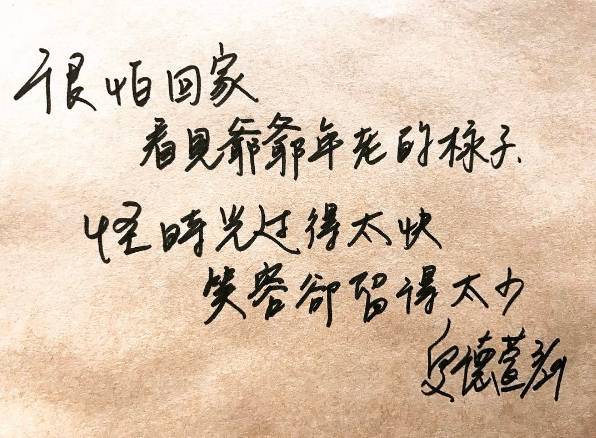 很怕回家
看見爺爺年老的樣子
怪時光过得太快
笑容卻留得太少
德萱 3/29